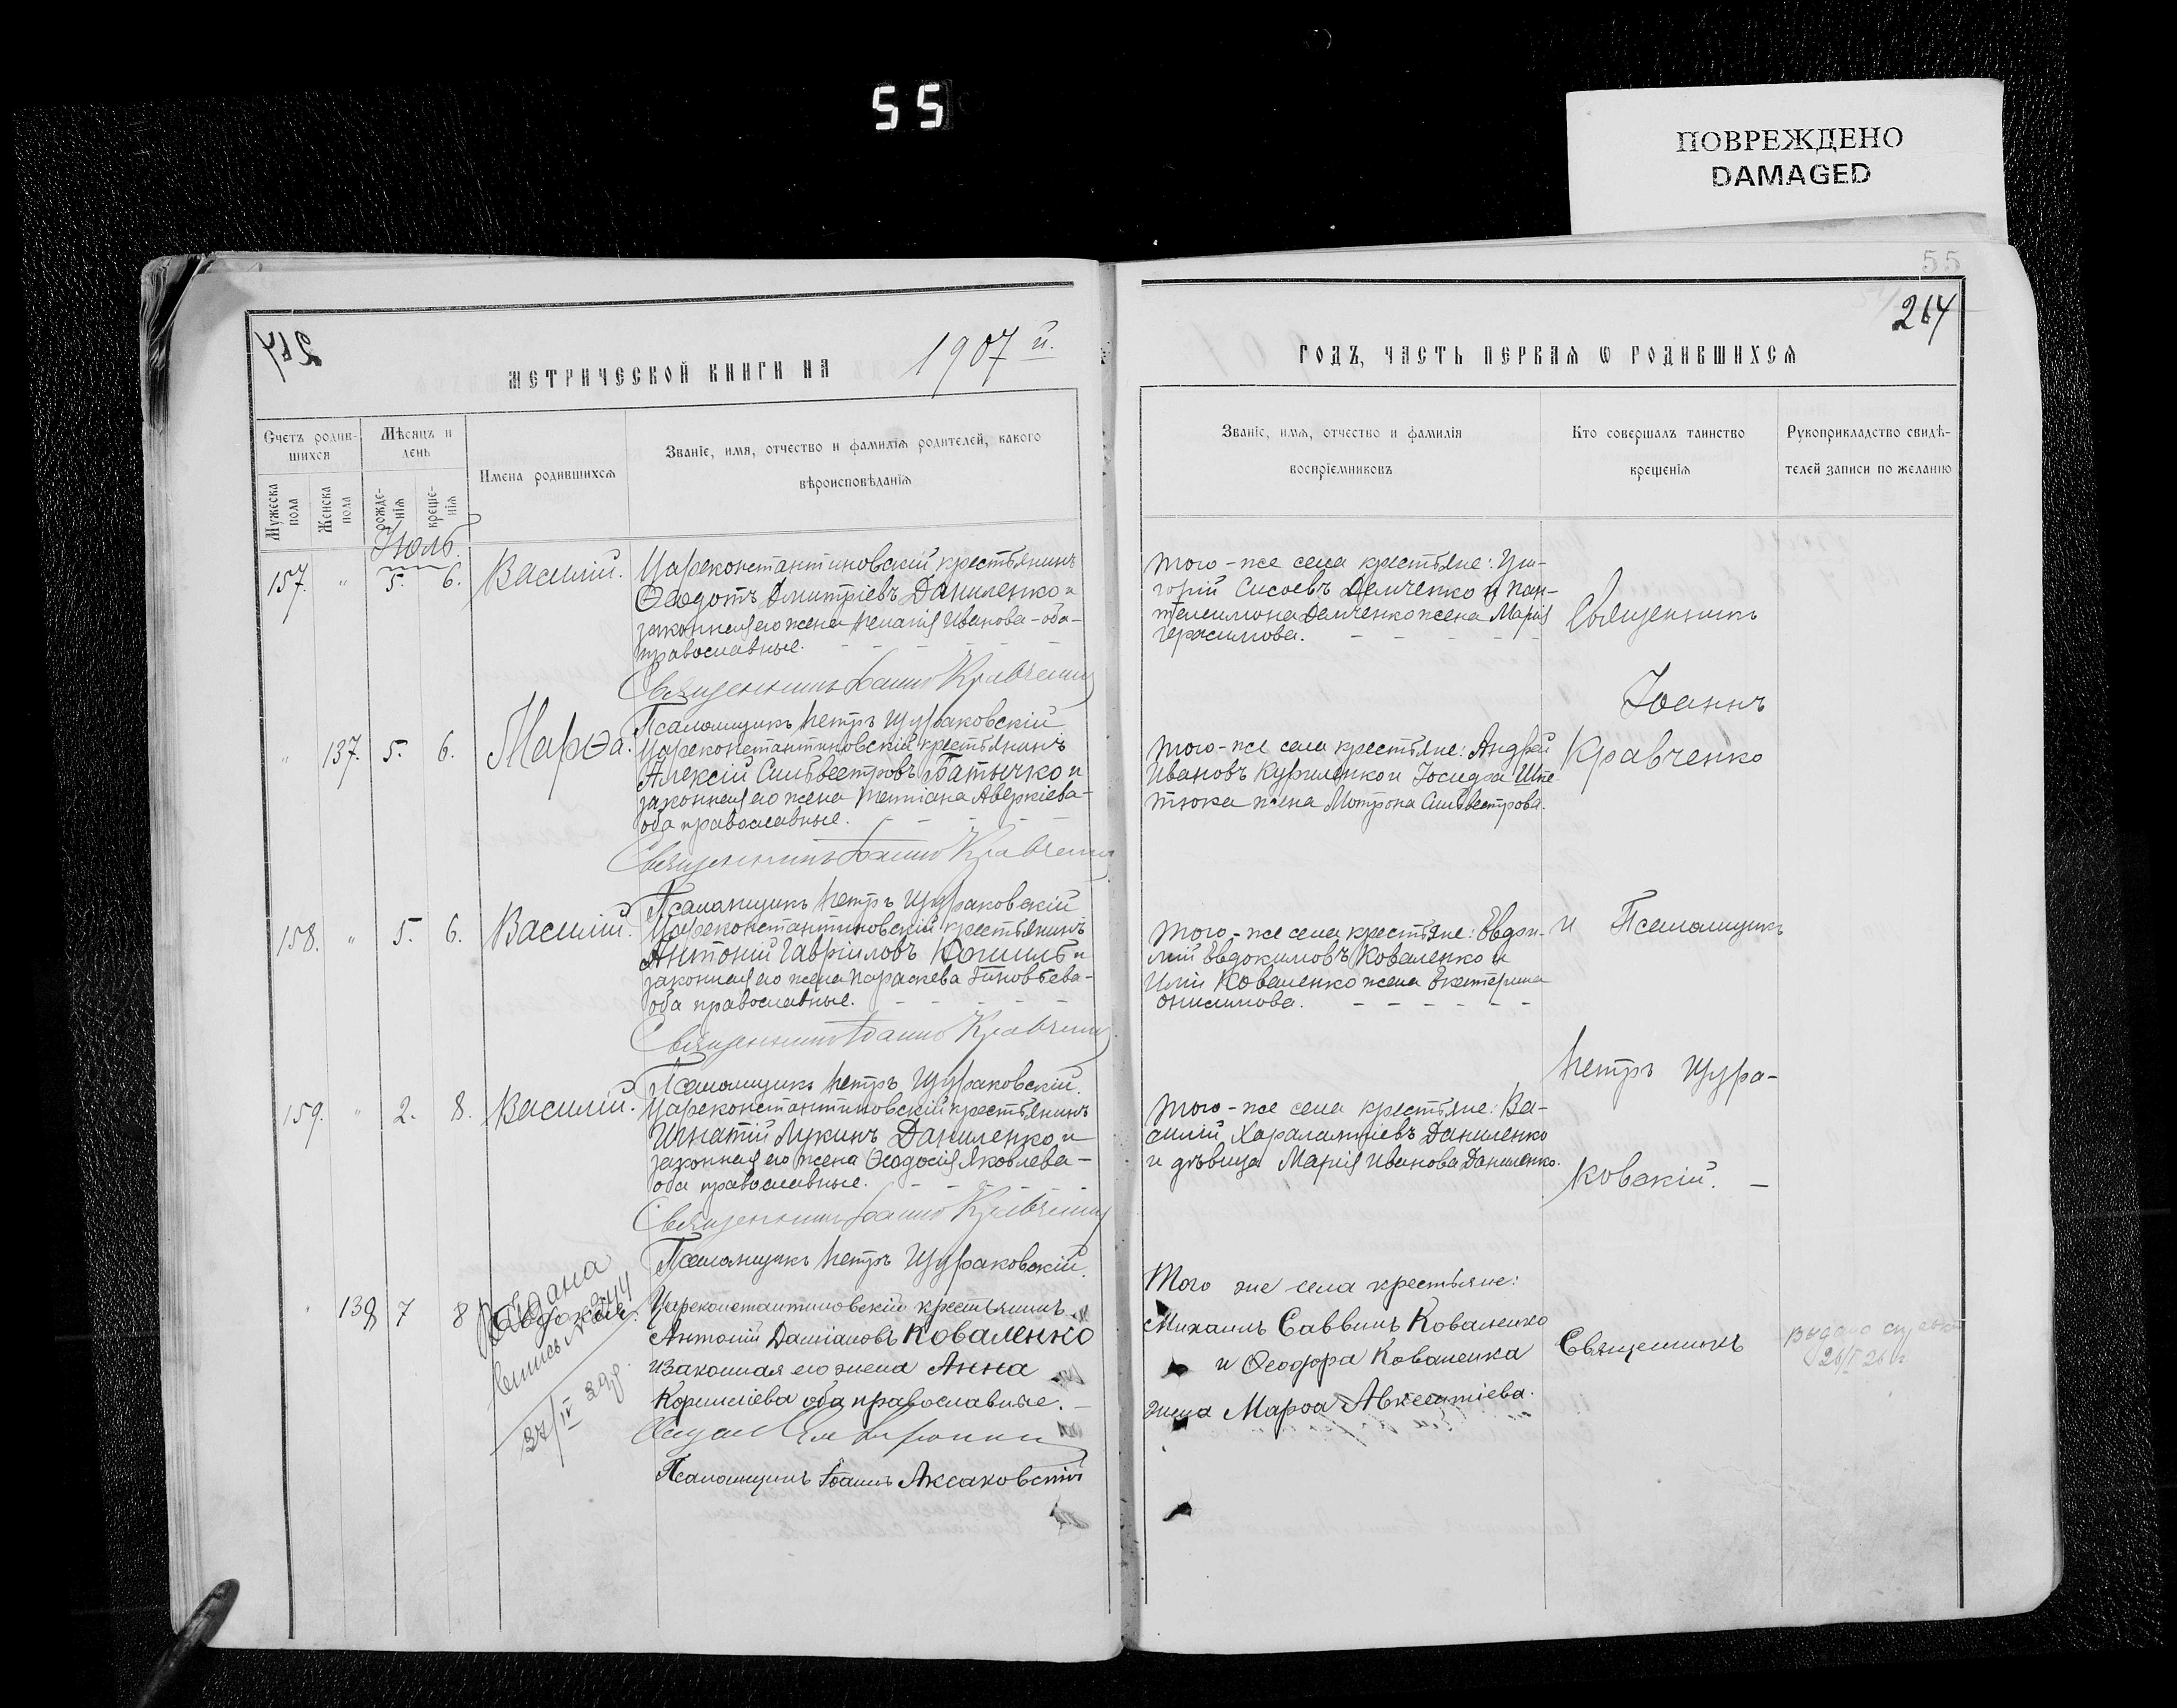 55
ПОВРЕЖДЕНО
DAMAGED
55
264
264
МЕТРИЧЕСКОЙ КНИГИ НА 1907 й.
ГОДЪ, ЧАСТЬ ПЕРВАЯ Ѡ РОДИВШИХСЯ
Счетъ родив-
шихся
Мужеска пола
Женска пола
Мѣсяцъ и
день
рожде-
нія
креще-
нія
Имена родившихся
Званіе, имя, отчество и фамилія родителей, какого
вѣроисповѣданія
Званіе, имя, отчество и фамилія
воспріемниковъ
Кто совершалъ таинство
крещенія
Рукоприкладство свидѣ-
телей записи по желанію
Июль.
157. " 5. 6. Василій.
Цареконстантиновскій крестьянинъ
Ѳеодотъ Дмитріевъ Даниленко и
законная его жена Пелагія Иванова - оба
православные.
Священникъ Іоаннъ Кравченко
Псаломщикъ Петръ Щураковскій
Того-же села крестьяне: Гри-
горій Сисоевъ Демченко и Пан-
телеимона Демченко жена Марія
Герасимова.
" 137. 5. 6. Марѳа.
Цареконстантиновскій крестьянинъ
Алексій Сильвестровъ Батычко и
законная его жена Татіана Аверкіева -
оба православные.
Священникъ Іоаннъ Кравченко
Псаломщикъ Петръ Щураковскій
Того-же села крестьяне: Андрей
Ивановъ Куриленко и Іосифа
жена Мотрона Сильвестрова.
158. " 5. 6. Василій.
Цареконстантиновскій крестьянинъ
Антоній Гавріиловъ и
законная его жена Параскева Зиновьева -
оба православные.
Священникъ Іоаннъ Кравченко
Псаломщикъ Петръ Щураковскій.
Того-же села крестьяне: Евфи-
мій Евдокимовъ Коваленко и
Иліи Коваленко жена Екатерина
Онисимова.
159. " 2. 8. Василій.
Цареконстантиновскій крестьянинъ
Игнатій Лукинъ Даниленко и
законная его жена Ѳеодосія Яковлева -
оба православные.
Священникъ Іоаннъ Кравченко
Псаломщикъ Петръ Щураковскій.
Того-же села крестьяне: Ва-
силій Харалампіевъ Даниленко
и дѣвица Марія Иванова Даниленко.
Священникъ
Іоаннъ
Кравченко
и Псаломщикъ
Петръ Щура-
ковскій. -
" 138 7 8
Выдана
выпись
Цареконстантиновскій крестьянинъ
Антоній Даміановъ Коваленко
и законная его жена Анна
Корниліева оба православные.
Псаломщикъ Іоаннъ Аксаковскій
Того же села крестьяне:
Михаилъ Саввинъ Коваленко
и Ѳеодора Коваленка
жена Марѳа Авксентіева.
Священникъ
Выдано